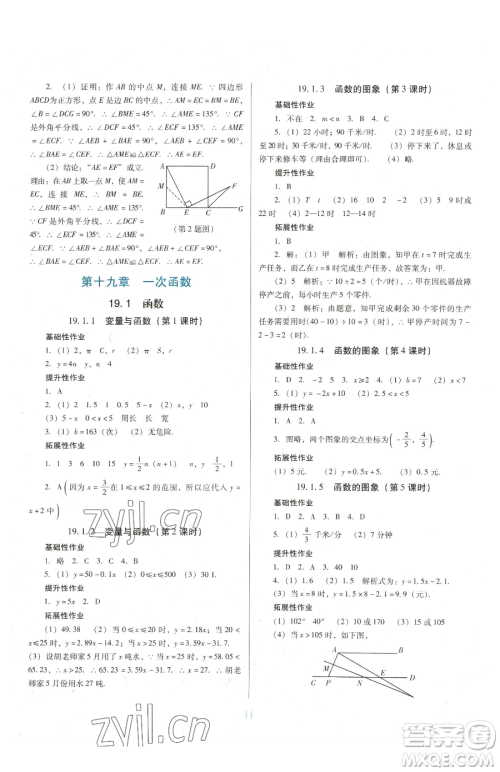 2. (1) 证明：作 AB 的中点 M，连接 ME. ∵ 四边形
ABCD为正方形，点 E 为 BC 中点，∴ BM = BE，AM =
EC. ∵ ∠B = 90°，∴ ∠BME = 45°，∴ ∠AME = 135°. ∵ CF
是外角平分线，∴ ∠DCF = 45°，∴ ∠ECF = 135°，∴ ∠AME =
∠ECF. ∵ ∠AEB + ∠BAE = 90°，∠AEB + ∠CEF = 90°，
∴ ∠BAE = ∠CEF. ∴ △AME≌△ECF. ∴ AE = EF.
(2) 结论：“AE = EF”成立.
理由：在 AB 上取一点 M，使
AM = EC，连接 ME. ∴ BM =
BE. ∴ ∠BME = 45°. ∴
∠AME = 135°. ∵ CF 是外角
平分线，∴ ∠DCF = 45°.
∴ ∠ECF = 135°. ∴ ∠AME =
∠ECF. ∵ ∠AEB + ∠BAE = 90°，∠AEB + ∠CEF = 90°，
∴ ∠BAE = ∠CEF. ∴ △AME≌△ECF. ∴ AE = EF.
A D F M B E C G
（第 2 题图）
第十九章 一次函数
19.1 函数
19.1.1 变量与函数（第 1 课时）
基础性作业
1. (1) 2，π C，r (2) π S，r
2. C 4. y = 4n y，n 4
提升性作业
1. A
2. (1) 2 1.5 1 0.5 (2) x y
(3) y = 5 - x 0 < x < 5 周长 长 宽
3. (1) b = 163（次） (2) 无危险.
拓展性作业
1. 1 3 6 10 15 y = 1/2 n(n + 1)
2. A（因为 x = 3/2 在 1 ≤ x ≤ 2 的范围，所以应代入 y =
x + 2 中）
19.1.2 变量与函数（第 2 课时）
基础性作业
1. 略 2. C 3. D 4. B
5. (1) y = 50 - 0.1x (2) 0 ≤ x ≤ 500 (3) 30 L
提升性作业
1. y = 5x 2. D
拓展性作业
(1) 49.38 (2) 当 0 < x ≤ 18 时，y = 2.18x；当
18 < x ≤ 25 时，y = 2.86x - 14.2；当 x > 25 时，y = 3.59x - 31.7.
(3) 设胡老师家 5 月用了 x 吨水，∵ 当 x = 25 时，y = 58.05 <
65.23，∴ x > 25. ∴ 65.23 = 3.59x - 31.7. ∴ x = 27. 胡老
师家 5 月份用水 27 吨.
19.1.3 函数的图象（第 3 课时）
基础性作业
1. 不在 2. m < n 3. B 4. C
5. (1) 22 小时；90 千米/时. (2) 2 时至 6 时，休息或
停下来修车等（回答合理即可）. (3) 90 千米/时. (4) 略.
提升性作业
1. B
2. (1) T t (2) 9 5 (3) 5—14 时 0—5 时，14—
22 时 (4) 0—2 时 12—14 时
拓展性作业
1. B
2. 解：(1) 甲 解析：根据图象可知甲一共生产 7 时完成
任务，乙一共生产 8 时完成任务，故答案为甲；
(2) 5 解析：根据图象可知，在 2 ≤ t ≤ 4，甲因机器故障
停产之前，甲每小时生产 5 个零件.
(3) 2 解析：在 4 ≤ t ≤ 7，甲生产零件的速度最快，每
小时的生产速度为 (40 - 10) ÷ 3 = 10，∴ 甲停产时间为 7 -
2 - 3 = 2.
19.1.4 函数的图象（第 4 课时）
基础性作业
1. D 2. -2 5 3. > 4. (1) h < 2 (2) x < 7
提升性作业
1. (1) y = -2x + 10 (2) 2.5 < x < 5
3. 图略，两个图象的交点坐标为 (-2/5，4/5).
拓展性作业
(1) 5 元. (2) y = 0.5x + 5. (3) 15 元.
19.1.5 函数的图象（第 5 课时）
基础性作业
1. D 2. D 3. A 4. A
5. (1) 4/3 千米/分 (2) 7 分钟
提升性作业
1. (1) 0.5 (2) 20.5 解析式：y = 0.5x + 18.
2. (1) -2 (2) 略 (3) x < -1 (4) x = 0 或 x = 2.
拓展性作业
(1) 102° 40° (2) 170 (3) 10 或 170
(4) 当 x > 105 时，如下图.
A B M C P N D
11
zyjl.cn